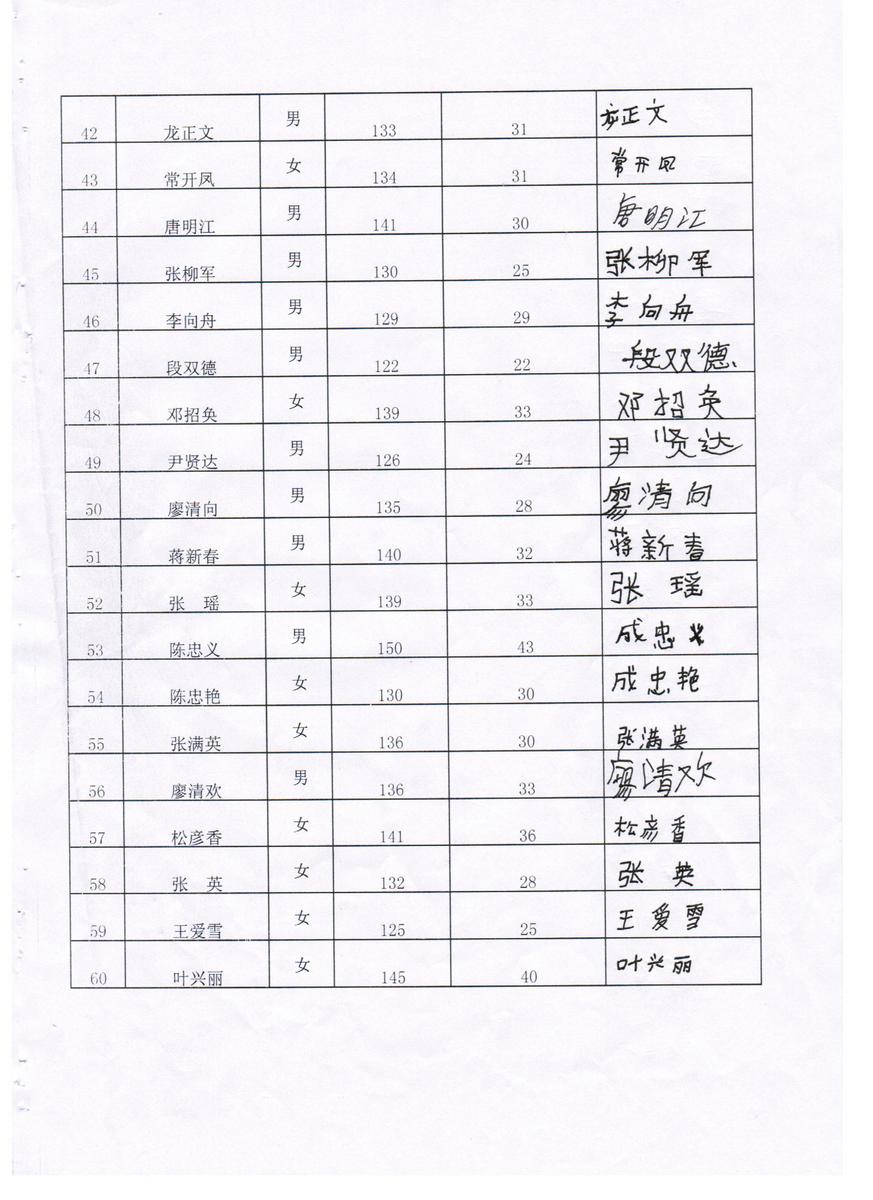 42 龙正文 男 133 31 龙正文
43 常开凤 女 134 31 常开凤
44 唐明江 男 141 30 唐明江
45 张柳军 男 130 25 张柳军
46 李向舟 男 129 29 李向舟
47 段双德 男 122 22 段双德
48 邓招奂 女 139 33 邓招奂
49 尹贤达 男 126 24 尹贤达
50 廖清向 男 135 28 廖清向
51 蒋新春 男 140 32 蒋新春
52 张 瑶 女 139 33 张 瑶
53 陈忠义 男 150 43 成忠义
54 陈忠艳 女 130 30 成忠艳
55 张满英 女 136 30 张满英
56 廖清欢 男 136 33 廖清欢
57 松彦香 女 141 36 松彦香
58 张 英 女 132 28 张 英
59 王爱雪 女 125 25 王爱雪
60 叶兴丽 女 145 40 叶兴丽